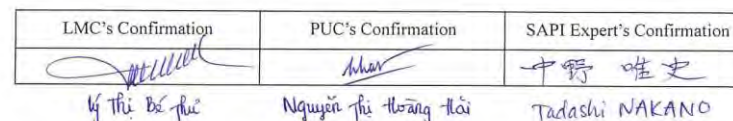 LMC's Confirmation PUC's Confirmation SAPI Expert's Confirmation
中野 唯史
Lý Thị Bé Thư Nguyễn Thị Hoàng Hải Tadashi NAKANO